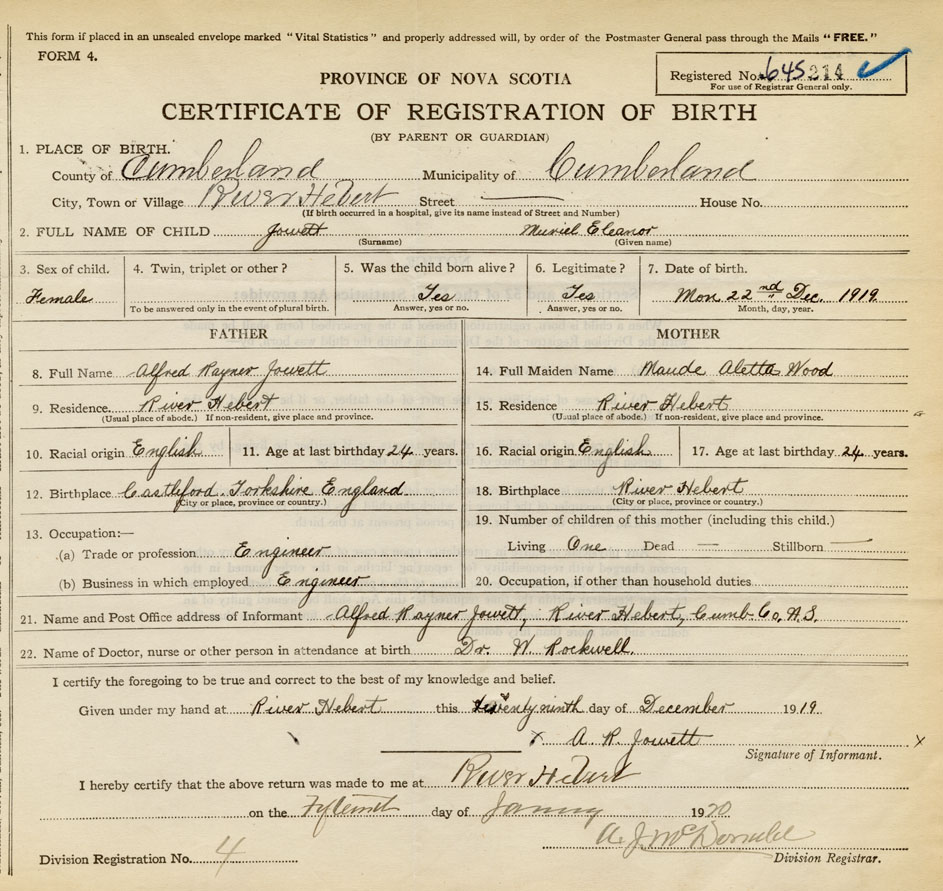 This form if placed in an unsealed envelope marked "Vital Statistics" and properly addressed will, by order of the Postmaster General pass through the Mails "FREE."
FORM 4.
Registered No. 645214
For use of Registrar General only.
PROVINCE OF NOVA SCOTIA
CERTIFICATE OF REGISTRATION OF BIRTH
(BY PARENT OR GUARDIAN)
1. PLACE OF BIRTH.
County of Cumberland Municipality of Cumberland
City, Town or Village River Hebert Street — House No.
(If birth occurred in a hospital, give its name instead of Street and Number)
2. FULL NAME OF CHILD Jowett Muriel Eleanor
(Surname) (Given name)
3. Sex of child. 4. Twin, triplet or other? 5. Was the child born alive? 6. Legitimate? 7. Date of birth.
Female Yes Yes Mon 22nd Dec. 1919
To be answered only in the event of plural birth. Answer, yes or no. Answer, yes or no. Month, day, year.
FATHER MOTHER
8. Full Name Alfred Rayner Jowett 14. Full Maiden Name Maude Aletta Wood
9. Residence River Hebert 15. Residence River Hebert
(Usual place of abode.) If non-resident, give place and province. (Usual place of abode.) If non-resident, give place and province.
10. Racial origin English 11. Age at last birthday 24 years. 16. Racial origin English 17. Age at last birthday 24 years.
12. Birthplace Castleford. Yorkshire England 18. Birthplace River Hebert
(City or place, province or country.) (City or place, province or country.)
13. Occupation:— 19. Number of children of this mother (including this child.)
(a) Trade or profession Engineer Living One Dead — Stillborn —
(b) Business in which employed Engineer 20. Occupation, if other than household duties
21. Name and Post Office address of Informant Alfred Rayner Jowett, River Hebert, Cumb. Co, N.S.
22. Name of Doctor, nurse or other person in attendance at birth Dr. W. Rockwell.
I certify the foregoing to be true and correct to the best of my knowledge and belief.
Given under my hand at River Hebert this twenty ninth day of December 1919.
x A. R. Jowett x
Signature of Informant.
I hereby certify that the above return was made to me at River Hebert
on the Fifteenth day of 1920
A. J.
Division Registration No. 4 Division Registrar.